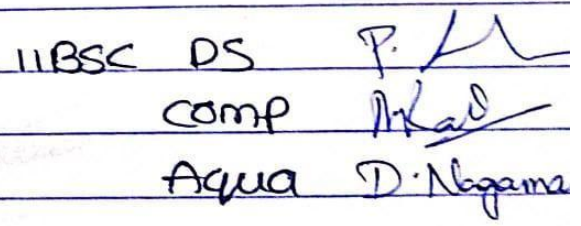 IIBSC DS P.
COMP
Aqua D. Nagama